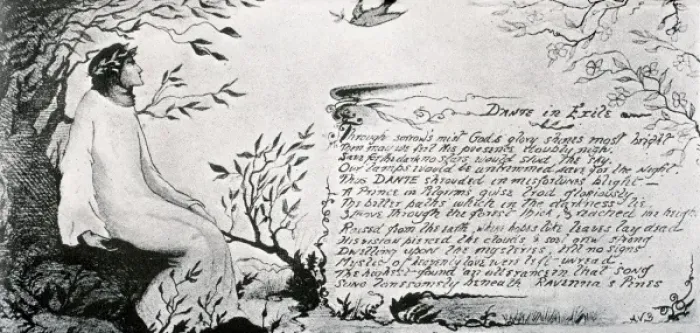 DANTE in Exile
Through sorrow's mist God's glory shines most bright
Then may we feel His presence doubly nigh.
Save for the dark no stars would stud the sky.
Our lamps would be untrimmed save for the night.
Thus DANTE shrouded in misfortunes blight —
A Prince in Pilgrims guise trod gloriously
The bitter paths which in the darkness lie.
Strove through the forest thick, & reached the height
Raised from the earth, where hopes like leaves lay dead
His vision pierced the clouds & soar
Dwelling upon the mysteries, till no signs
Mystic of heavenly love were left unread.
The highest found an utterance in that song
Sung lonesomely beneath RAVENNA's Pines
AVB